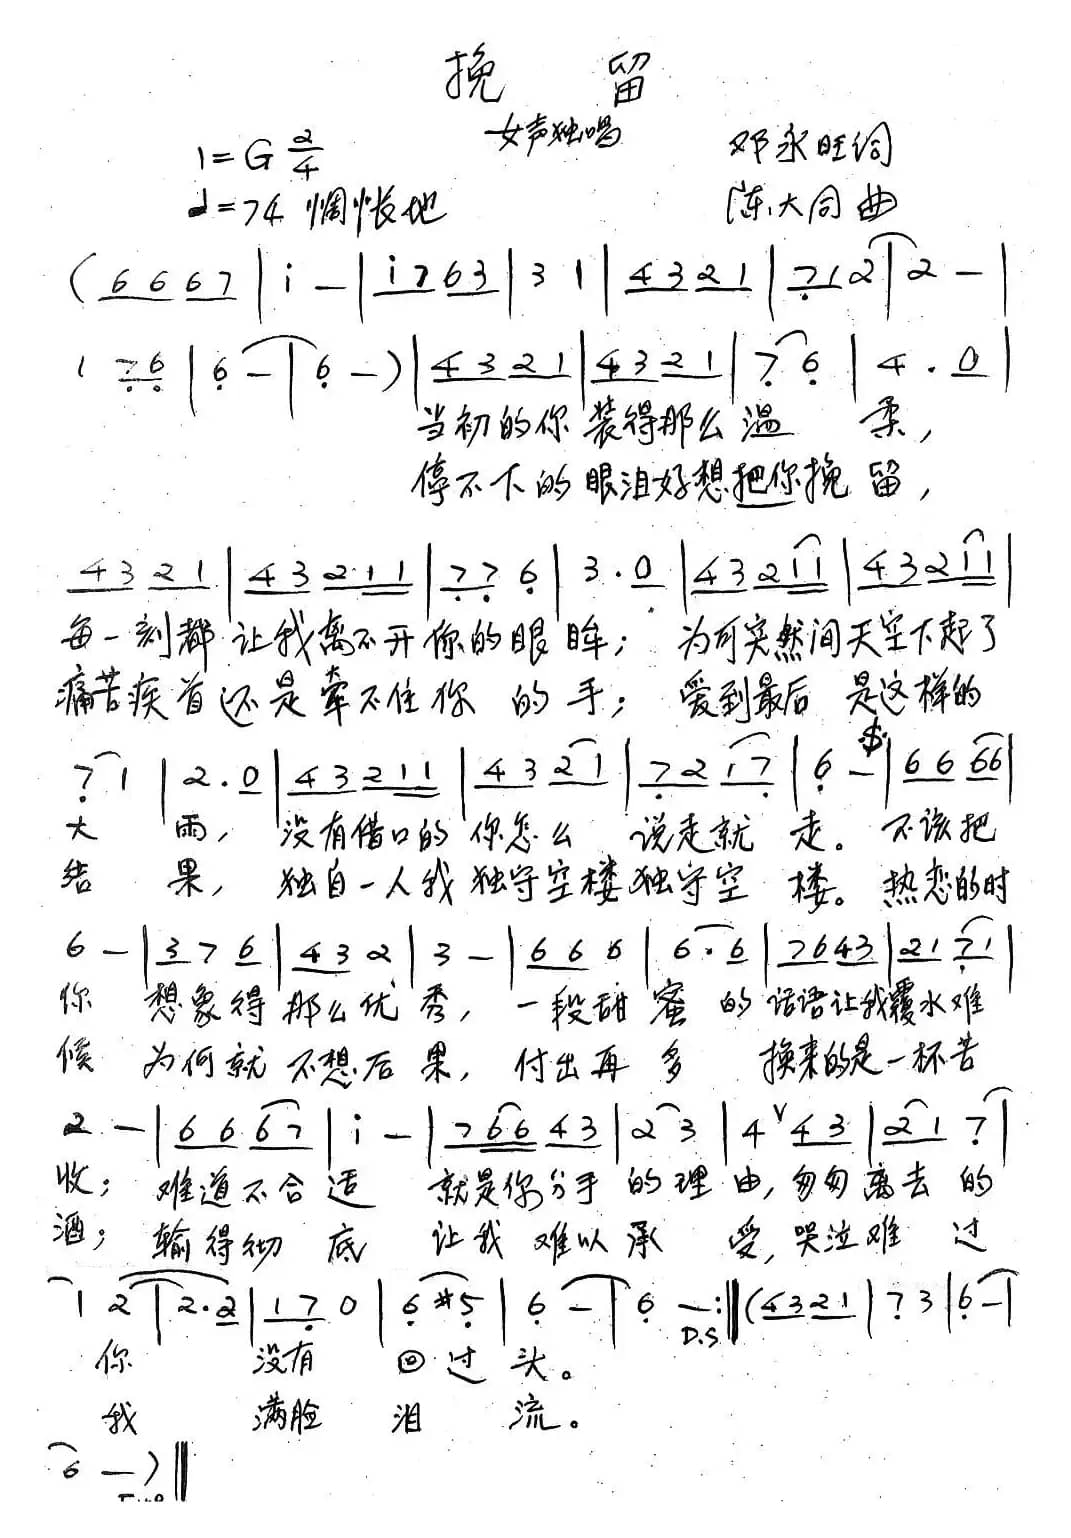 挽 留
女声独唱
1=G 2/4 邓永旺词
♩=74 惆怅地 陈大同曲
( 6 6 6 7 | i — | i 7 6 3 | 3 1 | 4 3 2 1 | 7 1 2 | 2 — |
1 7 6 | 6 — | 6 — ) | 4 3 2 1 | 4 3 2 1 | 7 6 | 4 . 0 |
当初的你 装得那么 温 柔,
停不下的眼泪好想把你挽留,
4 3 2 1 | 4 3 2 1 1 | 7 7 6 | 3 . 0 | 4 3 2 1 1 | 4 3 2 1 1 |
每一刻都 让我离不开你的眼眸; 为何突然间天空下起了
痛苦疾首还是牵不住你 的手; 爱到最后 是这样的
7 1 | 2 . 0 | 4 3 2 1 1 | 4 3 2 1 | 7 2 1 7 | 6 — | 6 6 6 6 |
大 雨, 没有借口的 你怎么 说走就 走。 不该把
结 果, 独自一人我独守空楼独守空 楼。 热恋的时
6 — | 3 7 6 | 4 3 2 | 3 — | 6 6 6 | 6 . 6 | 7 6 4 3 | 2 1 7 1 |
你 想象得 那么优 秀, 一段甜 蜜 的话语让我覆水难
候 为何就 不想后 果, 付出再 多 换来的是一杯苦
2 — | 6 6 6 7 | i — | 7 6 6 4 3 | 2 3 | 4 ∨ 4 3 | 2 1 7 |
收; 难道不合适 就是你分手的理由, 匆匆离去的
酒; 输得彻 底 让我 难以承 受, 哭泣难 过
1 2 | 2 . 2 | 1 7 0 | 6 #5 | 6 — | 6 — :‖ ( 4 3 2 1 | 7 3 | 6 — |
D.S
你 没有 回过头。
我 满脸 泪 流。
6 — ) ‖